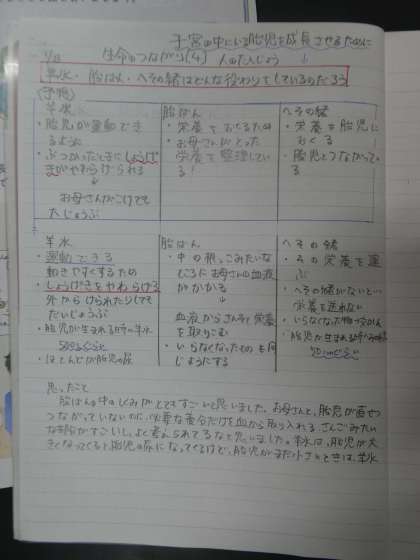 子宮の中にいる胎児を成長させるために
生命のつながり(4) 人のたんじょう
羊水・胎ばん・へその緒はどんな役わりをしているのだろう
(予想)
羊水
・胎児が運動でき
るように
・ぶつかったときにしょうげ
きがやわらげられる
お母さんがこけても
だいじょうぶ
胎ばん
・栄養を
・お母さんがとった
栄養を整理してい
る!
へその緒
・栄養を胎児に
おくる
・胎児とつながってい
る
羊水
・運動できる
動きやすくするため
・しょうげきをやわらげる
外からけられたりしても
だいじょうぶ
・胎児が生まれる時の羊水
・ほとんどが胎児の尿
胎ばん
・中の根っこみたいな
ところにお母さんの血液
がかかる
血液からさんそや栄養
を取りこむ
・いらなくなったものも同
じようにする
へその緒
・その栄養を運
ぶ
・へその緒がないと
栄養を送れない
・いらなくなった物
・胎児が生まれる時
50cmぐらい
思ったこと
胎ばんの中のしくみがとてもすごいと思いました。お母さんと、胎児が直せつ
つながっていないのに、必要な養分だけを血から取り入れる さんごみたい
な部分がすごいし、よく考えられてるなと思いました。羊水は、胎児が大
きくなってくると胎児の尿になってくるけど、胎児がまだ小さいときは、羊水